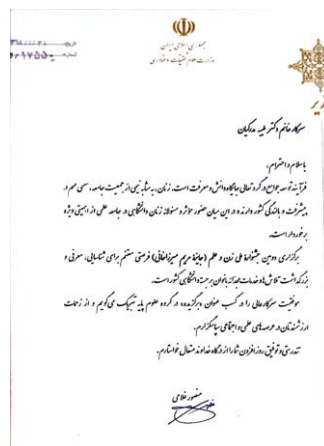 جمهوری اسلامی ایران
وزارت علوم، تحقیقات و فناوری
سرکار خانم دکتر
با سلام و احترام،
فرآیند توسعه جوامع در گرو تعالی جایگاه دانش و معرفت است. زنان، به مثابه نیمی از جمعیت جامعه، سهمی مهم در
پیشرفت و بالندگی کشور دارند و در این میان حضور مؤثر و مسئولانه زنان دانشگاهی در جامعه علمی از اهمیتی ویژه
برخوردار است.
برگزاری دومین جشنواره ملی زن و علم (جایزه مریم میرزاخانی) فرصتی مغتنم برای شناسایی، معرفی و
بزرگداشت تلاش‌ها و خدمات مجدانه بانوان برجسته دانشگاهی کشور است.
موفقیت سرکارعالی را در کسب عنوان برگزیده در گروه علوم پایه تبریک می‌گویم و از زحمات
ارزشمندتان در عرصه‌های علمی و اجتماعی سپاسگزارم.
تندرستی و توفیق روزافزون شما را از درگاه خداوند متعال خواستارم.
منصور غلامی